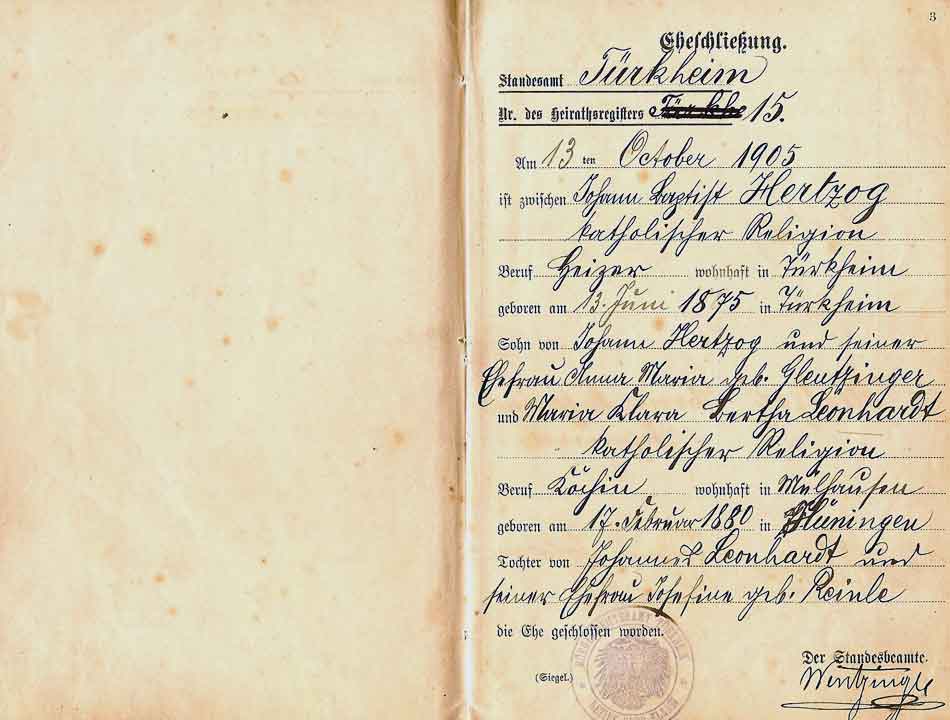 3
Eheschließung.
Standesamt Türkheim
Nr. des Heirathsregisters 15.
Am 13 ten October 1905
ist zwischen Johann Baptist Hertzog
katholischer Religion
Beruf Heizer wohnhaft in Türkheim
geboren am 13. Juni 1875 in Türkheim
Sohn von Johann Hertzog und seiner
Ehefrau Anna Maria geb. Glentzinger
und Maria Klara Bertha Leonhardt
katholischer Religion
Beruf Köchin wohnhaft in Mülhausen
geboren am 17. Februar 1880 in Hüningen
Tochter von Johannes Leonhardt und
seiner Ehefrau Josefine geb. Reinle
die Ehe geschlossen worden.
Der Standesbeamte.
(Siegel.)